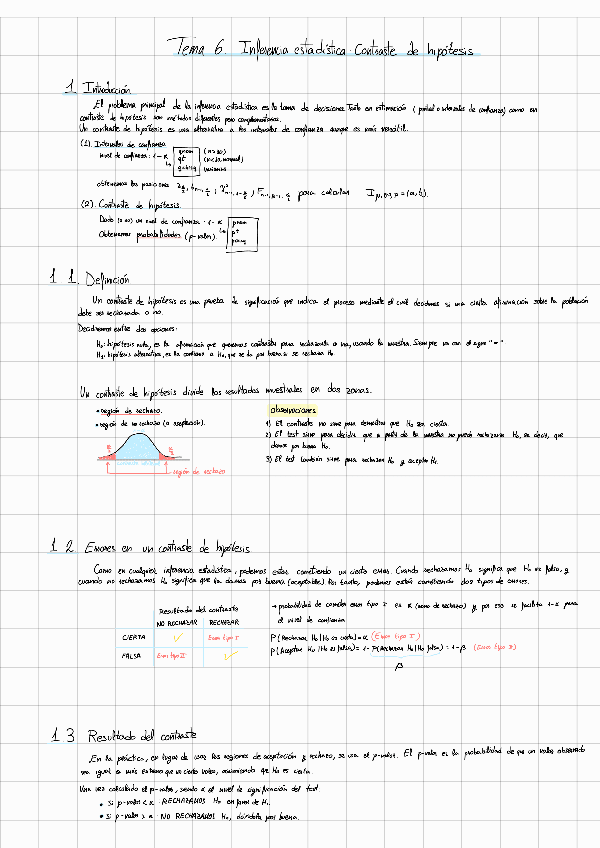 Tema 6. Inferencia estadística. Contraste de hipótesis
1. Introducción
El problema principal de la inferencia estadística es la toma de decisiones. Tanto en estimación (puntual o intervalos de confianza) como en
contraste de hipótesis son métodos diferentes pero complementarios.
Un contraste de hipótesis es una alternativa a los intervalos de confianza aunque es más versátil.
(1). Intervalos de confianza
Nivel de confianza: 1-α
qnorm (n>30)
qt (n<30, normal)
varianzas
obtenemos las posiciones
para calcular
(2). Contraste de hipótesis.
Dado un nivel de confianza 1-α
pnorm
Obtenemos probabilidades (p-valor).
pt
1.1. Definición
Un contraste de hipótesis es una prueba de significación que indica el proceso mediante el cual decidimos si una cierta afirmación sobre la población
debe ser rechazada o no.
Decidiremos entre dos opciones:
H₀: hipótesis nula, es la afirmación que queremos contrastar para rechazarla o no, usando la muestra. Siempre va con el signo "=".
H₁: hipótesis alternativa, es la contraria a H₀, que se da por buena si se rechaza H₀.
Un contraste de hipótesis divide los resultados muestrales en dos zonas.
• región de rechazo.
• región de no rechazo (o aceptación).
región de rechazo
observaciones
1) El contraste no sirve para demostrar que H₀ sea cierta.
2) El test sirve para decidir que a partir de la muestra no puedo rechazar H₀, es decir, que
damos por buena H₀.
3) El test también sirve para rechazar H₀ y aceptar H₁.
1.2 Errores en un contraste de hipótesis
Como en cualquier inferencia estadística, podemos estar cometiendo un cierto error. Cuando rechazamos H₀ significa que H₀ es falsa, y
cuando no rechazamos H₀ significa que la damos por buena (aceptable). Por tanto, podemos estar cometiendo dos tipos de errores.
Resultado del contraste
NO RECHAZAR RECHAZAR
CIERTA ✓ Error tipo I
FALSA Error tipo II ✓
→ probabilidad de cometer error tipo I es α (zona de rechazo) y por eso se facilita 1-α para
el nivel de confianza
P(Rechazar H₀ | H₀ es cierta) = α (Error tipo I)
P(Aceptar H₀ | H₀ es falsa) = 1- P(Rechazar H₀ | H₀ falsa) = 1-β (Error tipo II)
β
1.3 Resultado del contraste
En la práctica, en lugar de usar las regiones de aceptación y rechazo, se usa el p-valor. El p-valor es la probabilidad de que un valor observado
sea igual o más extremo que un cierto valor, asumiendo que H₀ es cierta.
Una vez calculado el p-valor, siendo α el nivel de significación del test.
• Si p-valor < α RECHAZAMOS H₀ en favor de H₁.
• Si p-valor > α NO RECHAZAMOS H₀, dándola por buena.